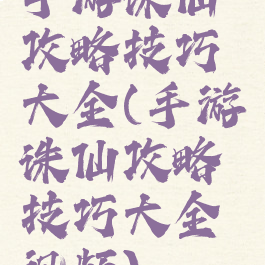 手游诛仙
攻略技巧
大全(手游
诛仙攻略
技巧大全
视频)